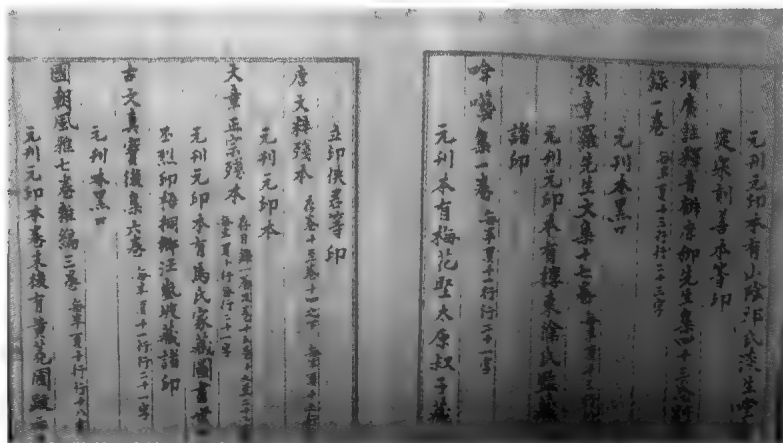 元刋元印本有山陰祁氏澹生堂
定宋刻善本等印
增廣註釋音辯唐柳先生集四十三卷附
錄一卷 每半頁十三行行二十三字
元刋本黑口
豫章羅先生文集十七卷 每半頁十三行
元刋元印本有檇李徐氏鑒藏
諸印
唫嚶集一卷 每半頁十一行行二十一字
元刋本有梅花墅太原叔子藏
立印俠君等印
唐文粹殘本 存卷十三卷十四之下 每半頁十
元刋元印本
文章正宗殘本 存目錄一卷 每半頁十行行二十一字
元刋元印本有馬氏家藏圖書
丕烈印梧桐鄉汪 收藏諸印
古文真寶後集六卷 每半頁十一行行二十一字
元刋本黑口
國朝風雅七卷雜編三卷 每半頁十行行十八
元刋元印本卷末後有黃蕘圃跋